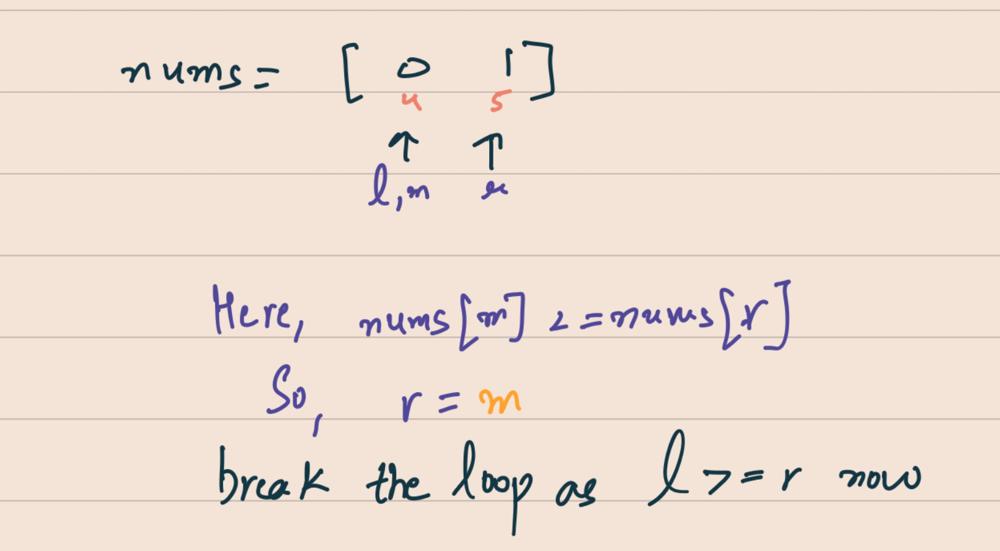 nums = [ 0 1 ]
4 5
↑ ↑
l,m r
Here, nums[m] <= nums[r]
So, r = m
break the loop as l >= r now